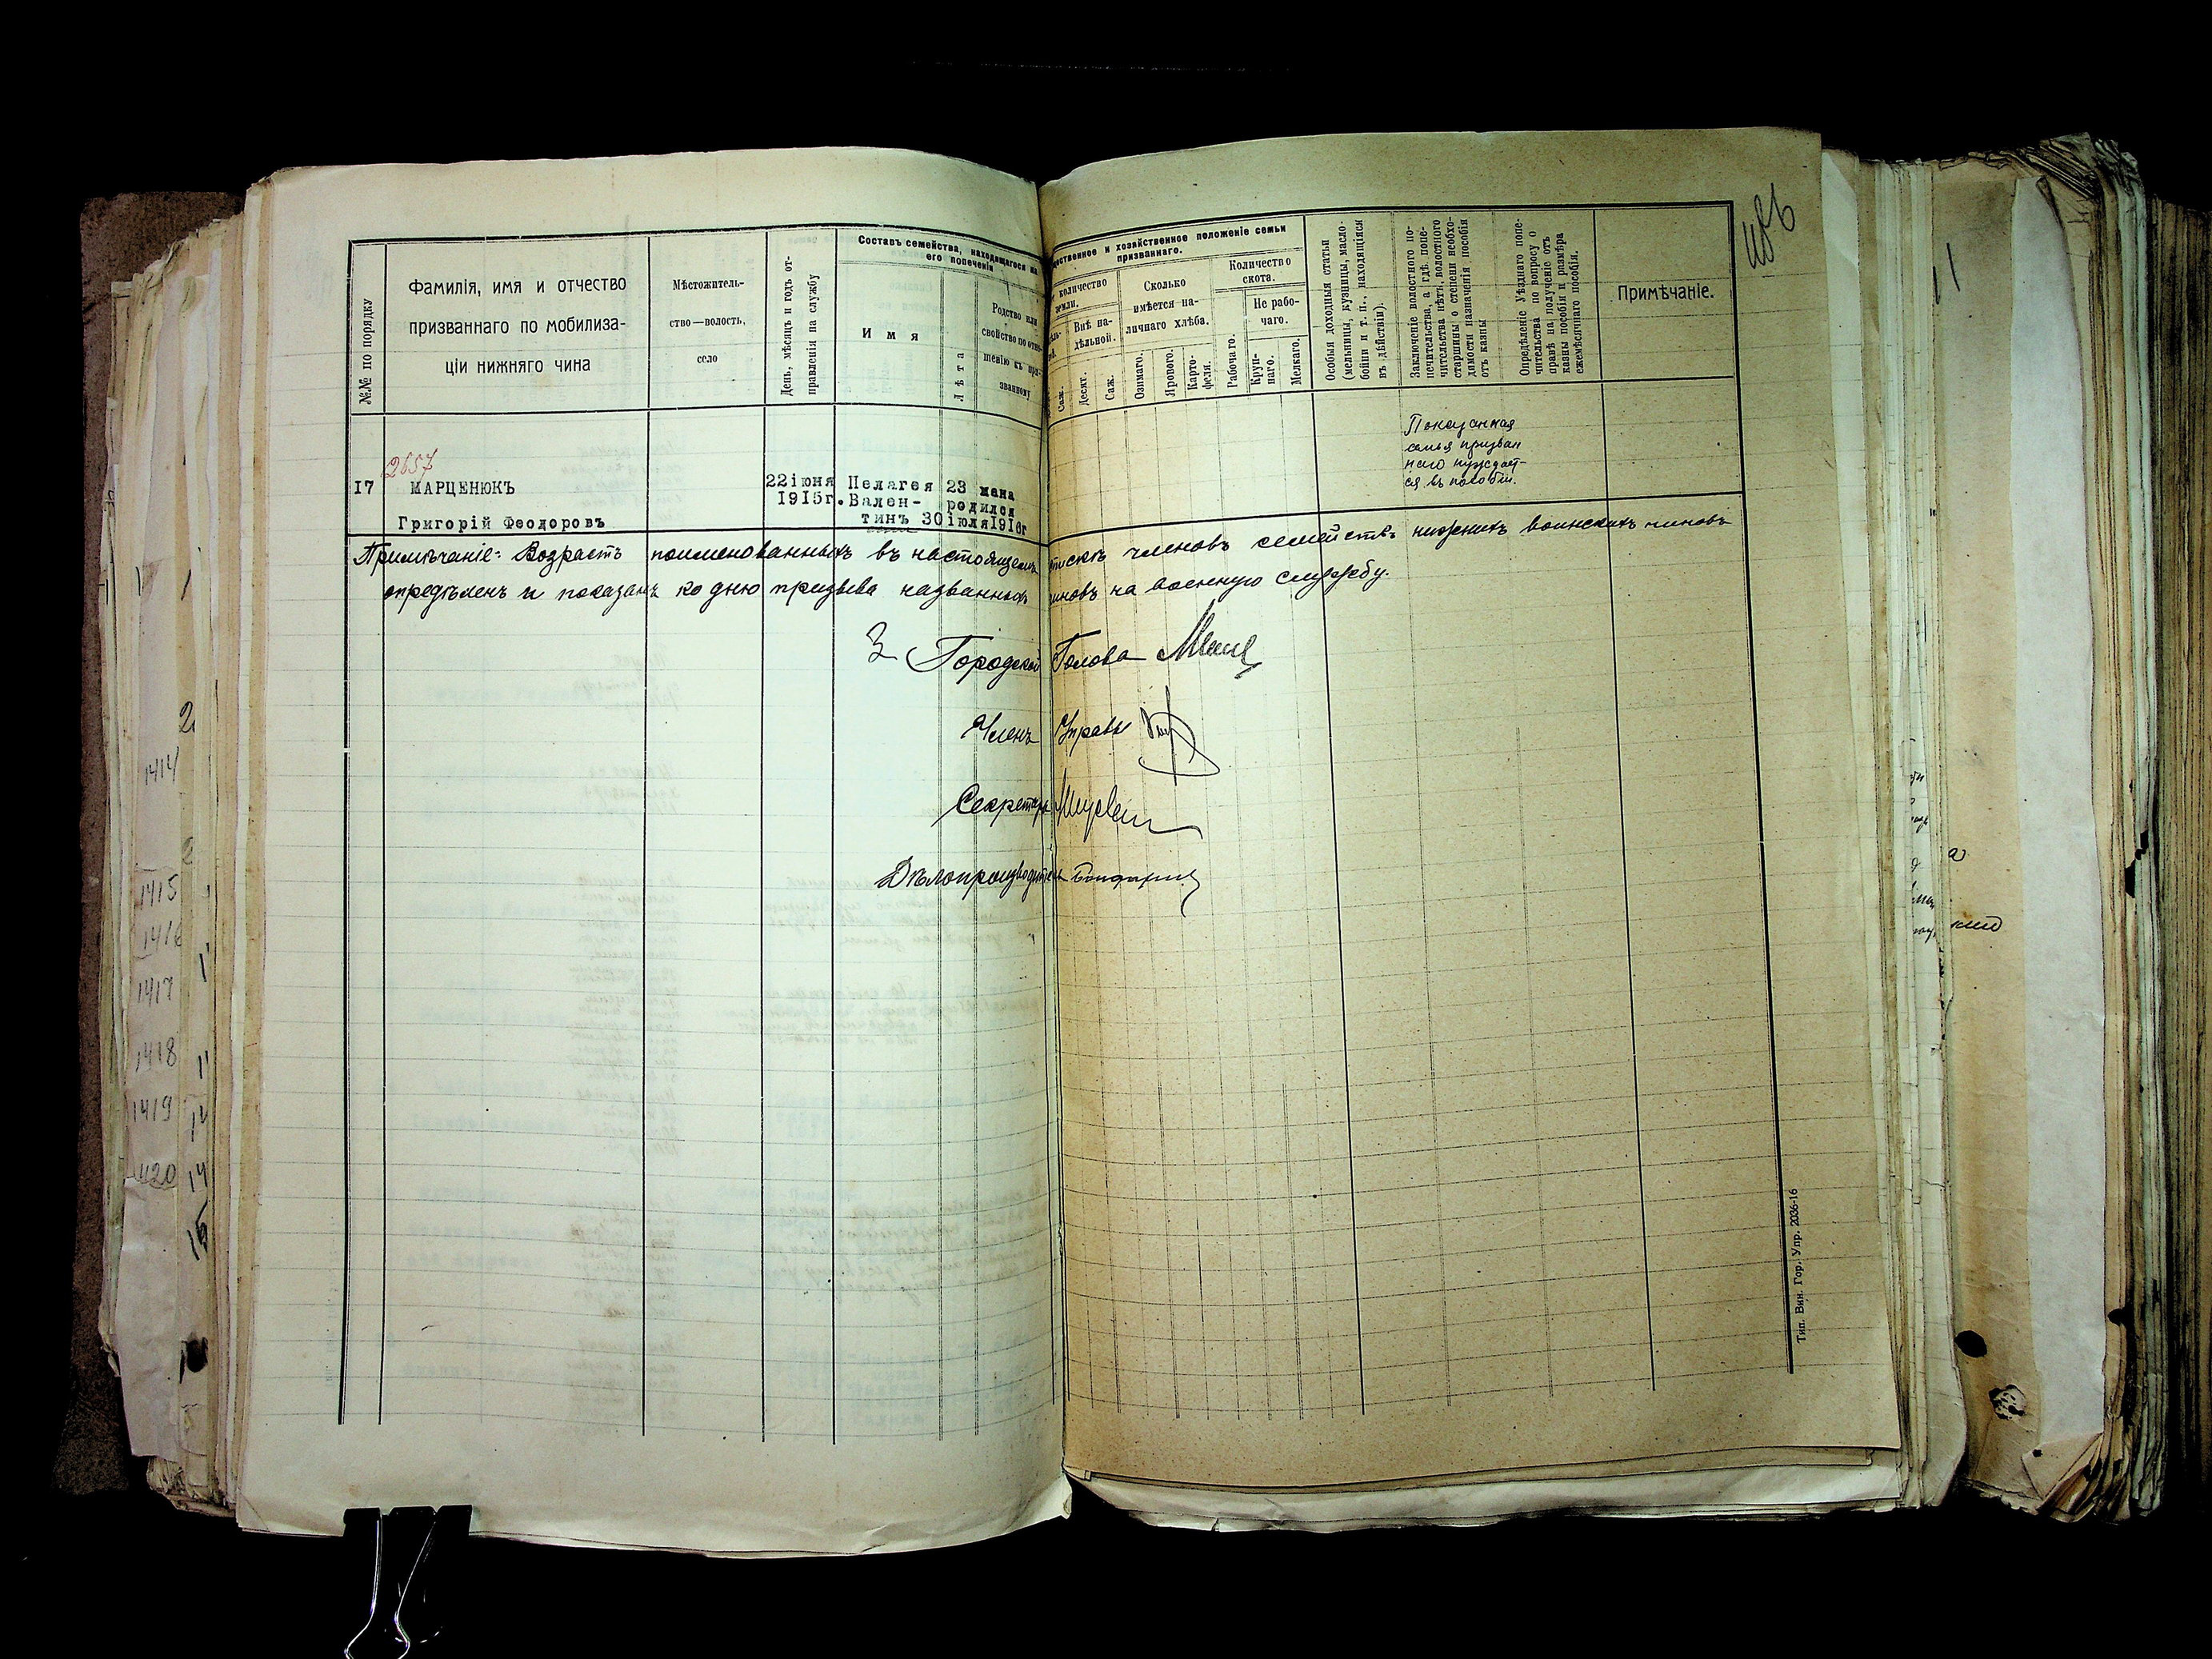 №№ по порядку
Фамилія, имя и отчество
призваннаго по мобилиза-
ціи нижняго чина
Мѣстожитель-
ство—волость,
село
День, мѣсяцъ и годъ от-
правленія на службу
Составъ семейства, находящагося на
его попеченіи
Имя
Лѣта
Родство или
свойство по отно-
шенію къ при-
званному
и хозяйственное положеніе семьи
призваннаго.
количество
земли.
Внѣ на-
дѣльной.
Саж.
Десят.
Саж.
Сколько
имѣется на-
личнаго хлѣба.
Озимаго.
Ярового.
Карто-
феля.
Количество
скота.
Рабочаго.
Не рабо-
чаго.
Круп-
наго.
Мелкаго.
Особыя доходныя статьи
(мельницы, кузницы, масло-
бойни и т. п., находящіяся
въ дѣйствіи).
Заключеніе волостного по-
печительства, а гдѣ попе-
чительства нѣтъ, волостного
старшины о степени необхо-
димости назначенія пособія
отъ казны
Опредѣленіе Уѣзднаго попе-
чительства по вопросу о
правѣ на полученіе отъ
казны пособія и размѣра
ежемѣсячнаго пособія.
Примѣчаніе.
2657
17 МАРЦЕНЮКЪ
Григорій Феодоровъ
22 іюня
1915г.
Пелагея 23 жена
Вален- родился
тинъ 30 іюля 1916г
Показанная
семья призван
наго нуждает-
ся въ пособіи.
Примѣчаніе: Возрастъ поименованныхъ въ настоящемъ спискѣ членовъ семействъ нижнихъ воинскихъ чиновъ
опредѣленъ и показанъ ко дню призыва названныхъ чиновъ на военную службу.
З Городской Голова
Членъ Управы
Секретарь
Дѣлопроизводитель
Тип. Вин. Гор. Упр. 2036-16
2
1414
1415
1416
1417
1418
1419
1420
14
14
15